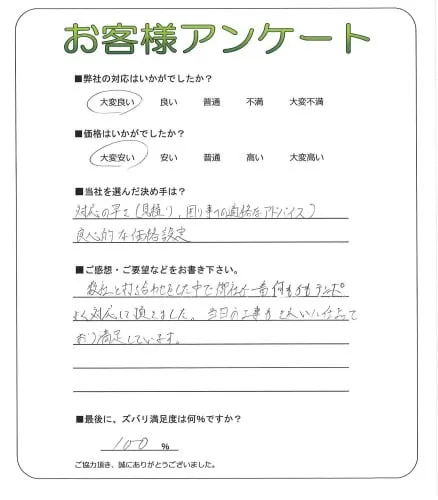 お客様アンケート
■弊社の対応はいかがでしたか？
大変良い 良い 普通 不満 大変不満
■価格はいかがでしたか？
大変安い 安い 普通 高い 大変高い
■当社を選んだ決め手は？
対応の早さ（見積り、困り事への適格なアドバイス）
良心的な価格設定
■ご感想・ご要望などをお書き下さい。
数社と打ち合わせをした中で御社が一番何もかもテンポ
よく対応して頂きました。当日の工事もきれいに仕上って
おり満足しています。
■最後に、ズバリ満足度は何％ですか？
100 ％
ご協力頂き、誠にありがとうございました。